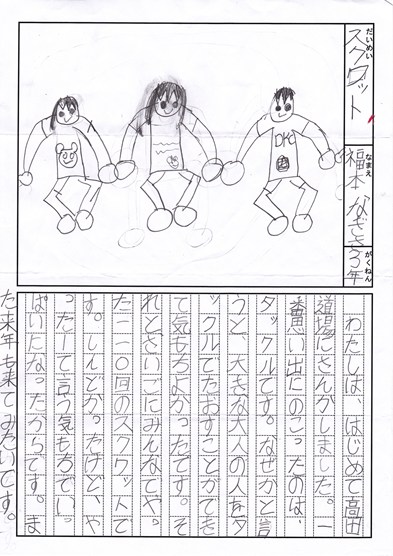 だいめい
スクワット
なまえ
福本 なぎさ
がくねん
3年
DKC
わたしは、はじめて高田
道場にさんかしました。一
番思い出にのこったのは、
タックルです。なぜかと言
うと、大きな大人の人をタ
ックルでたおすことができ
て気もちよかったです。そ
れとさいごにみんなでやっ
た一一〇回のスクワットで
す。しんどかったけど、や
ったーて言う気もちでいっ
ぱいになったからです。ま
た来年も来てみたいです。